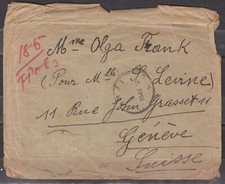 185
Mme Olga Frank
(Pour Mlle S. Levine)
11 Rue John Grasset 11
Genève
Suisse